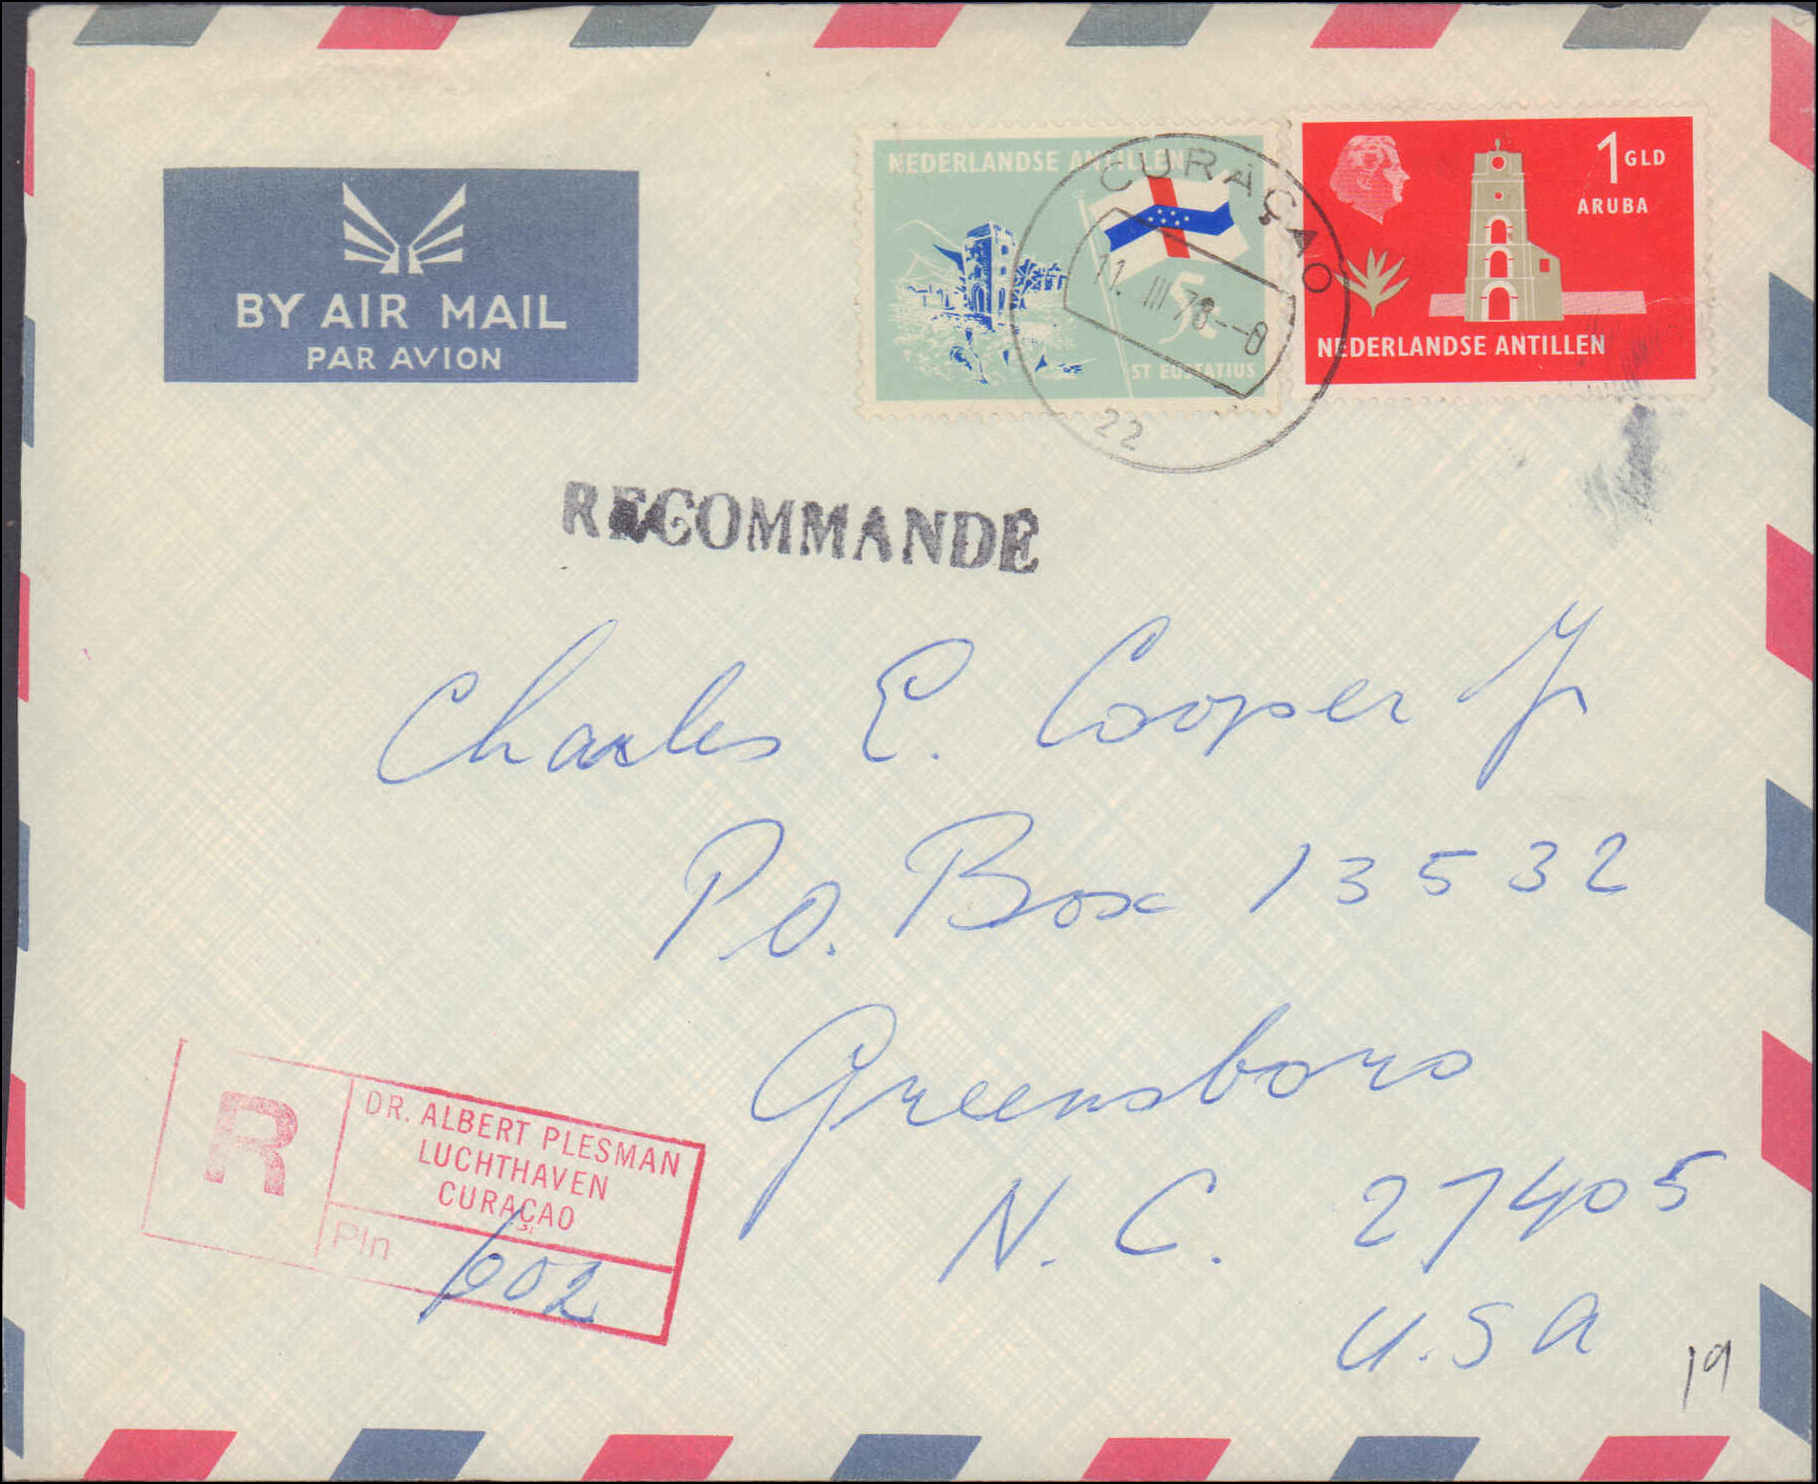 BY AIR MAIL
PAR AVION
NEDERLANDSE ANTILLEN
5c
ST EUSTATIUS
1 GLD
ARUBA
NEDERLANDSE ANTILLEN
CURAÇAO
11. III 78--8
22
RECOMMANDE
Charles E. Cooper Jr
P.O. Box 13532
Greensboro
N. C. 27405
U.S A
R
DR. ALBERT PLESMAN
LUCHTHAVEN
CURAÇAO
Pln 602
19